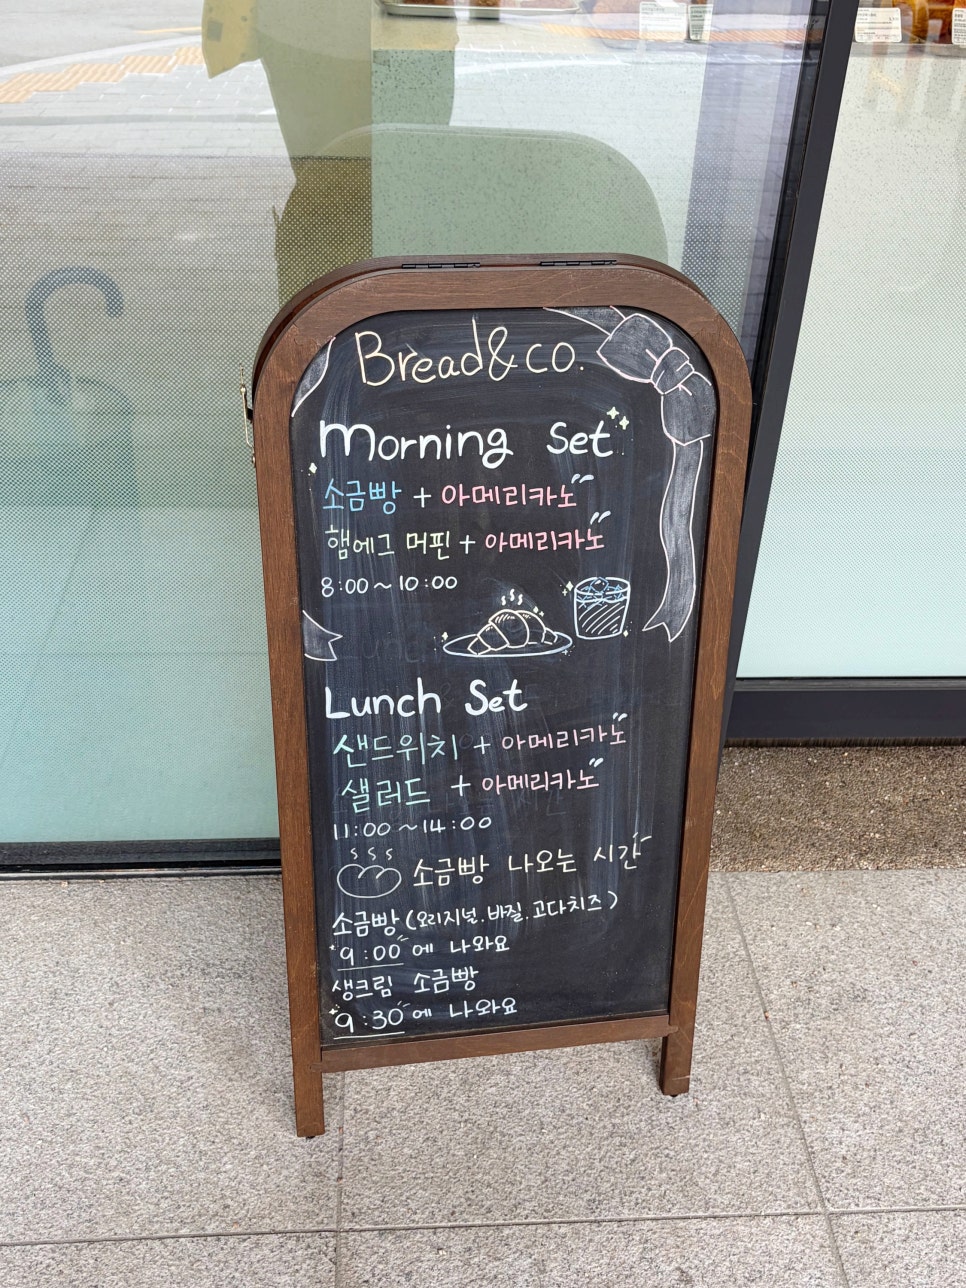 Bread&co.
Morning Set
소금빵 + 아메리카노
햄에그 머핀 + 아메리카노
8:00~10:00
Lunch Set
샌드위치 + 아메리카노
샐러드 + 아메리카노
11:00~14:00
소금빵 나오는 시간
소금빵(오리지널.바질.고다치즈)
9:00에 나와요
생크림 소금빵
9:30에 나와요